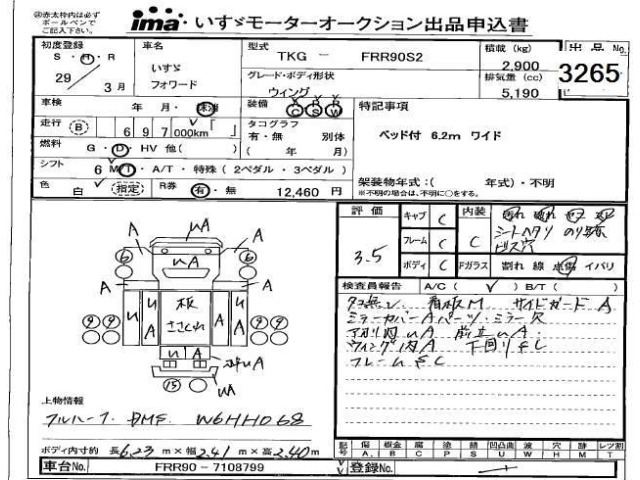 ㊟赤太枠内は必ず
ボールペンで
ご記入下さい。
ima いすゞモーターオークション出品申込書
初度登録
S・H・R
29 / 3月
車名
いすゞ
フォワード
型式
TKG - FRR90S2
グレード・ボディ形状
ウィング
積載 (kg)
2,900
排気量 (cc)
5,190
出品No.
3265
車検 年・月・抹消
装備 C S W
走行 B 697,000km
タコグラフ
有・無 別体
( 年 月)
燃料 G・D・HV 他( )
シフト 6 MT・A/T・特殊(2ペダル・3ペダル)
色 白 (指定) R券 有・無 12,460 円
特記事項
ベッド付 6.2m ワイド
架装物年式:( 年式)・不明
※不明の場合は、不明に○をする。
評価
3.5
キャブ C
フレーム C
ボディ C
内装 C
シートヘタリ
ビス穴
Fガラス 割れ 線 点傷 イバリ
検査員報告 A/C( ✓ ) B/T( )
タコ無し 看板M サイドガードA
ミラーカバーA パーツ・ミラー欠
ウィング内A 下回りSC
フレームSC
A
UA
A
A
UA
A
A
A
6
6
9
9
9
9
U
U
A
板
ささくれ
U
A
U
A
UA
UA
15
上物情報
フルハーフ DMF W6HH068
ボディ内寸約 長6.23m×幅2.41m×高2.40m
記号 傷 A. 板金 B 腐 C 塗 P 錆 S 凹凸曲 U 波 W 穴 H 跡 M レツ割 T
車台No. FRR90 - 7108799
登録No.